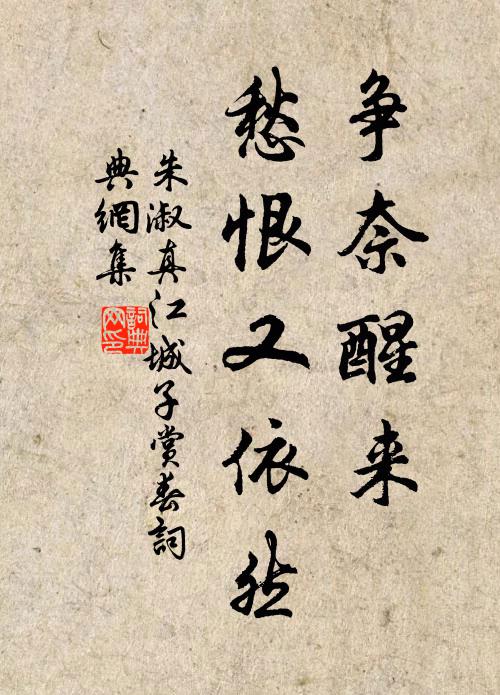 争奈醒来
愁恨又依然
朱淑真江城子赏春詞
典網集
詞典网印